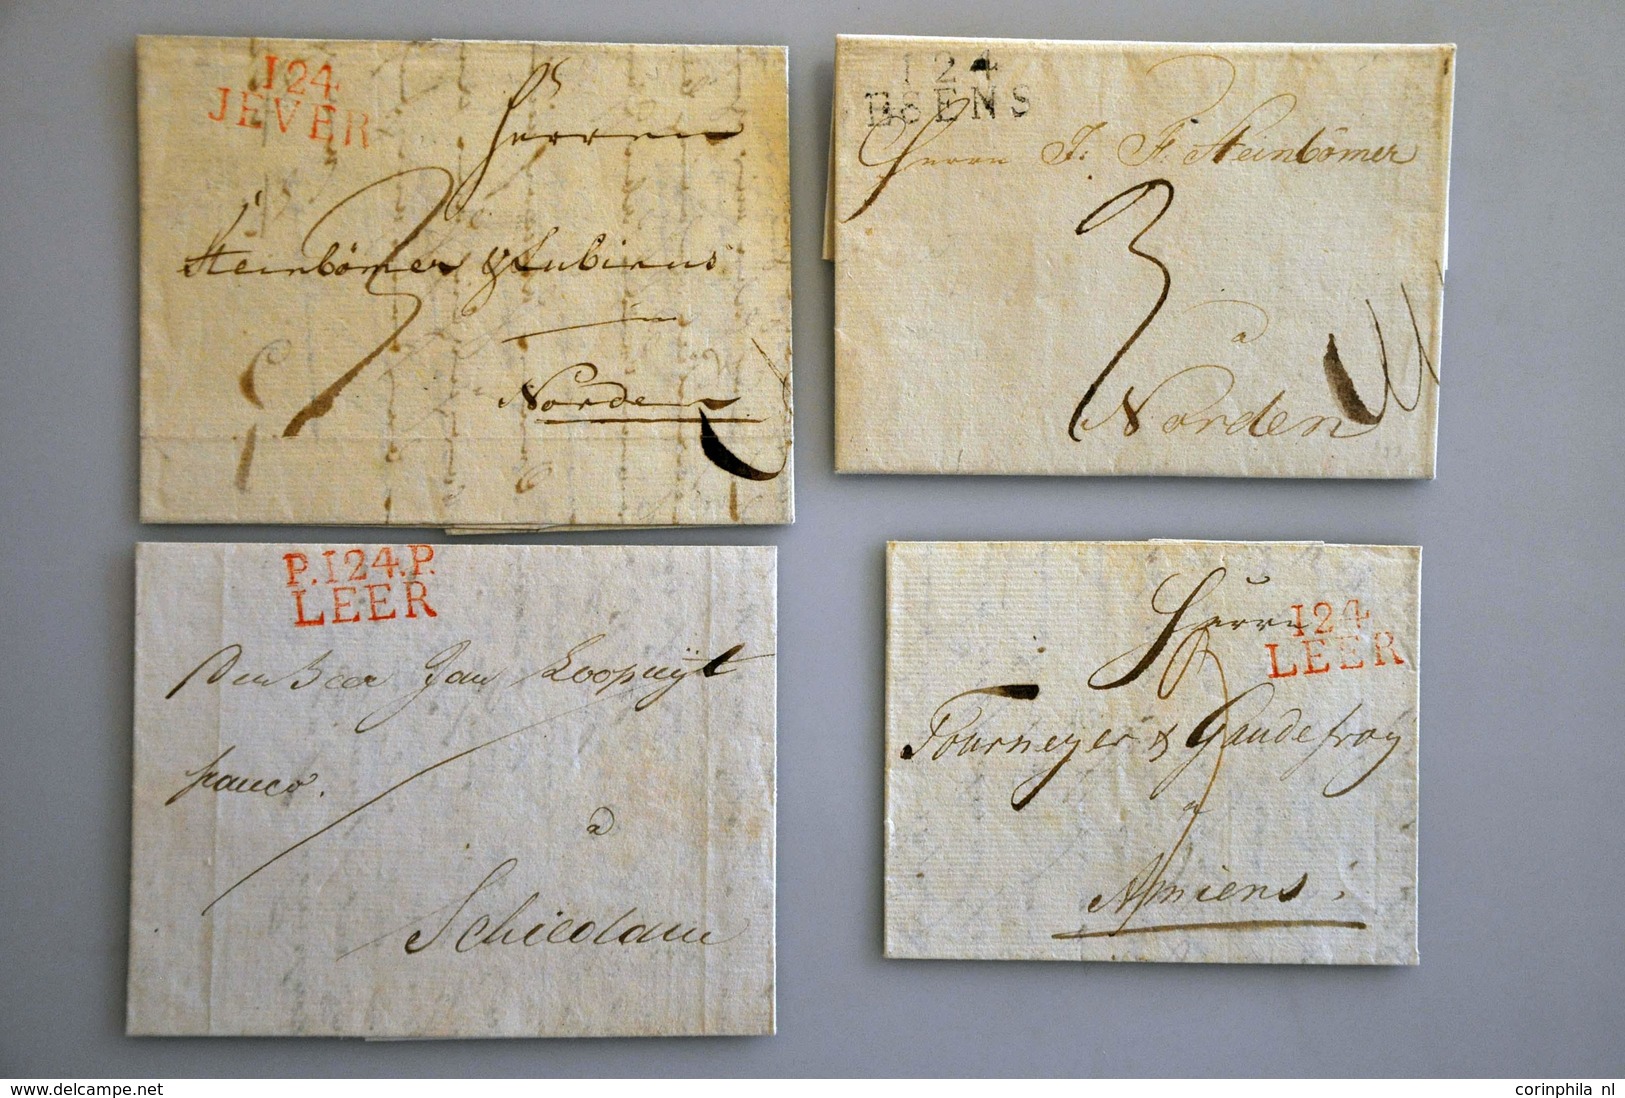 124
JEVER
Herren
Steinbömer & Lubinus
Norden
124
ESENS
Herrn J. F. Steinbömer
3
a
Norden
P.124.P.
LEER
Den Heer Jan Loopuÿt
franco.
a
Schiedam
124
LEER
Herrn
Tourneyer & Gaudefroy
a
Amiens.
delcampe.net
corinphila nl